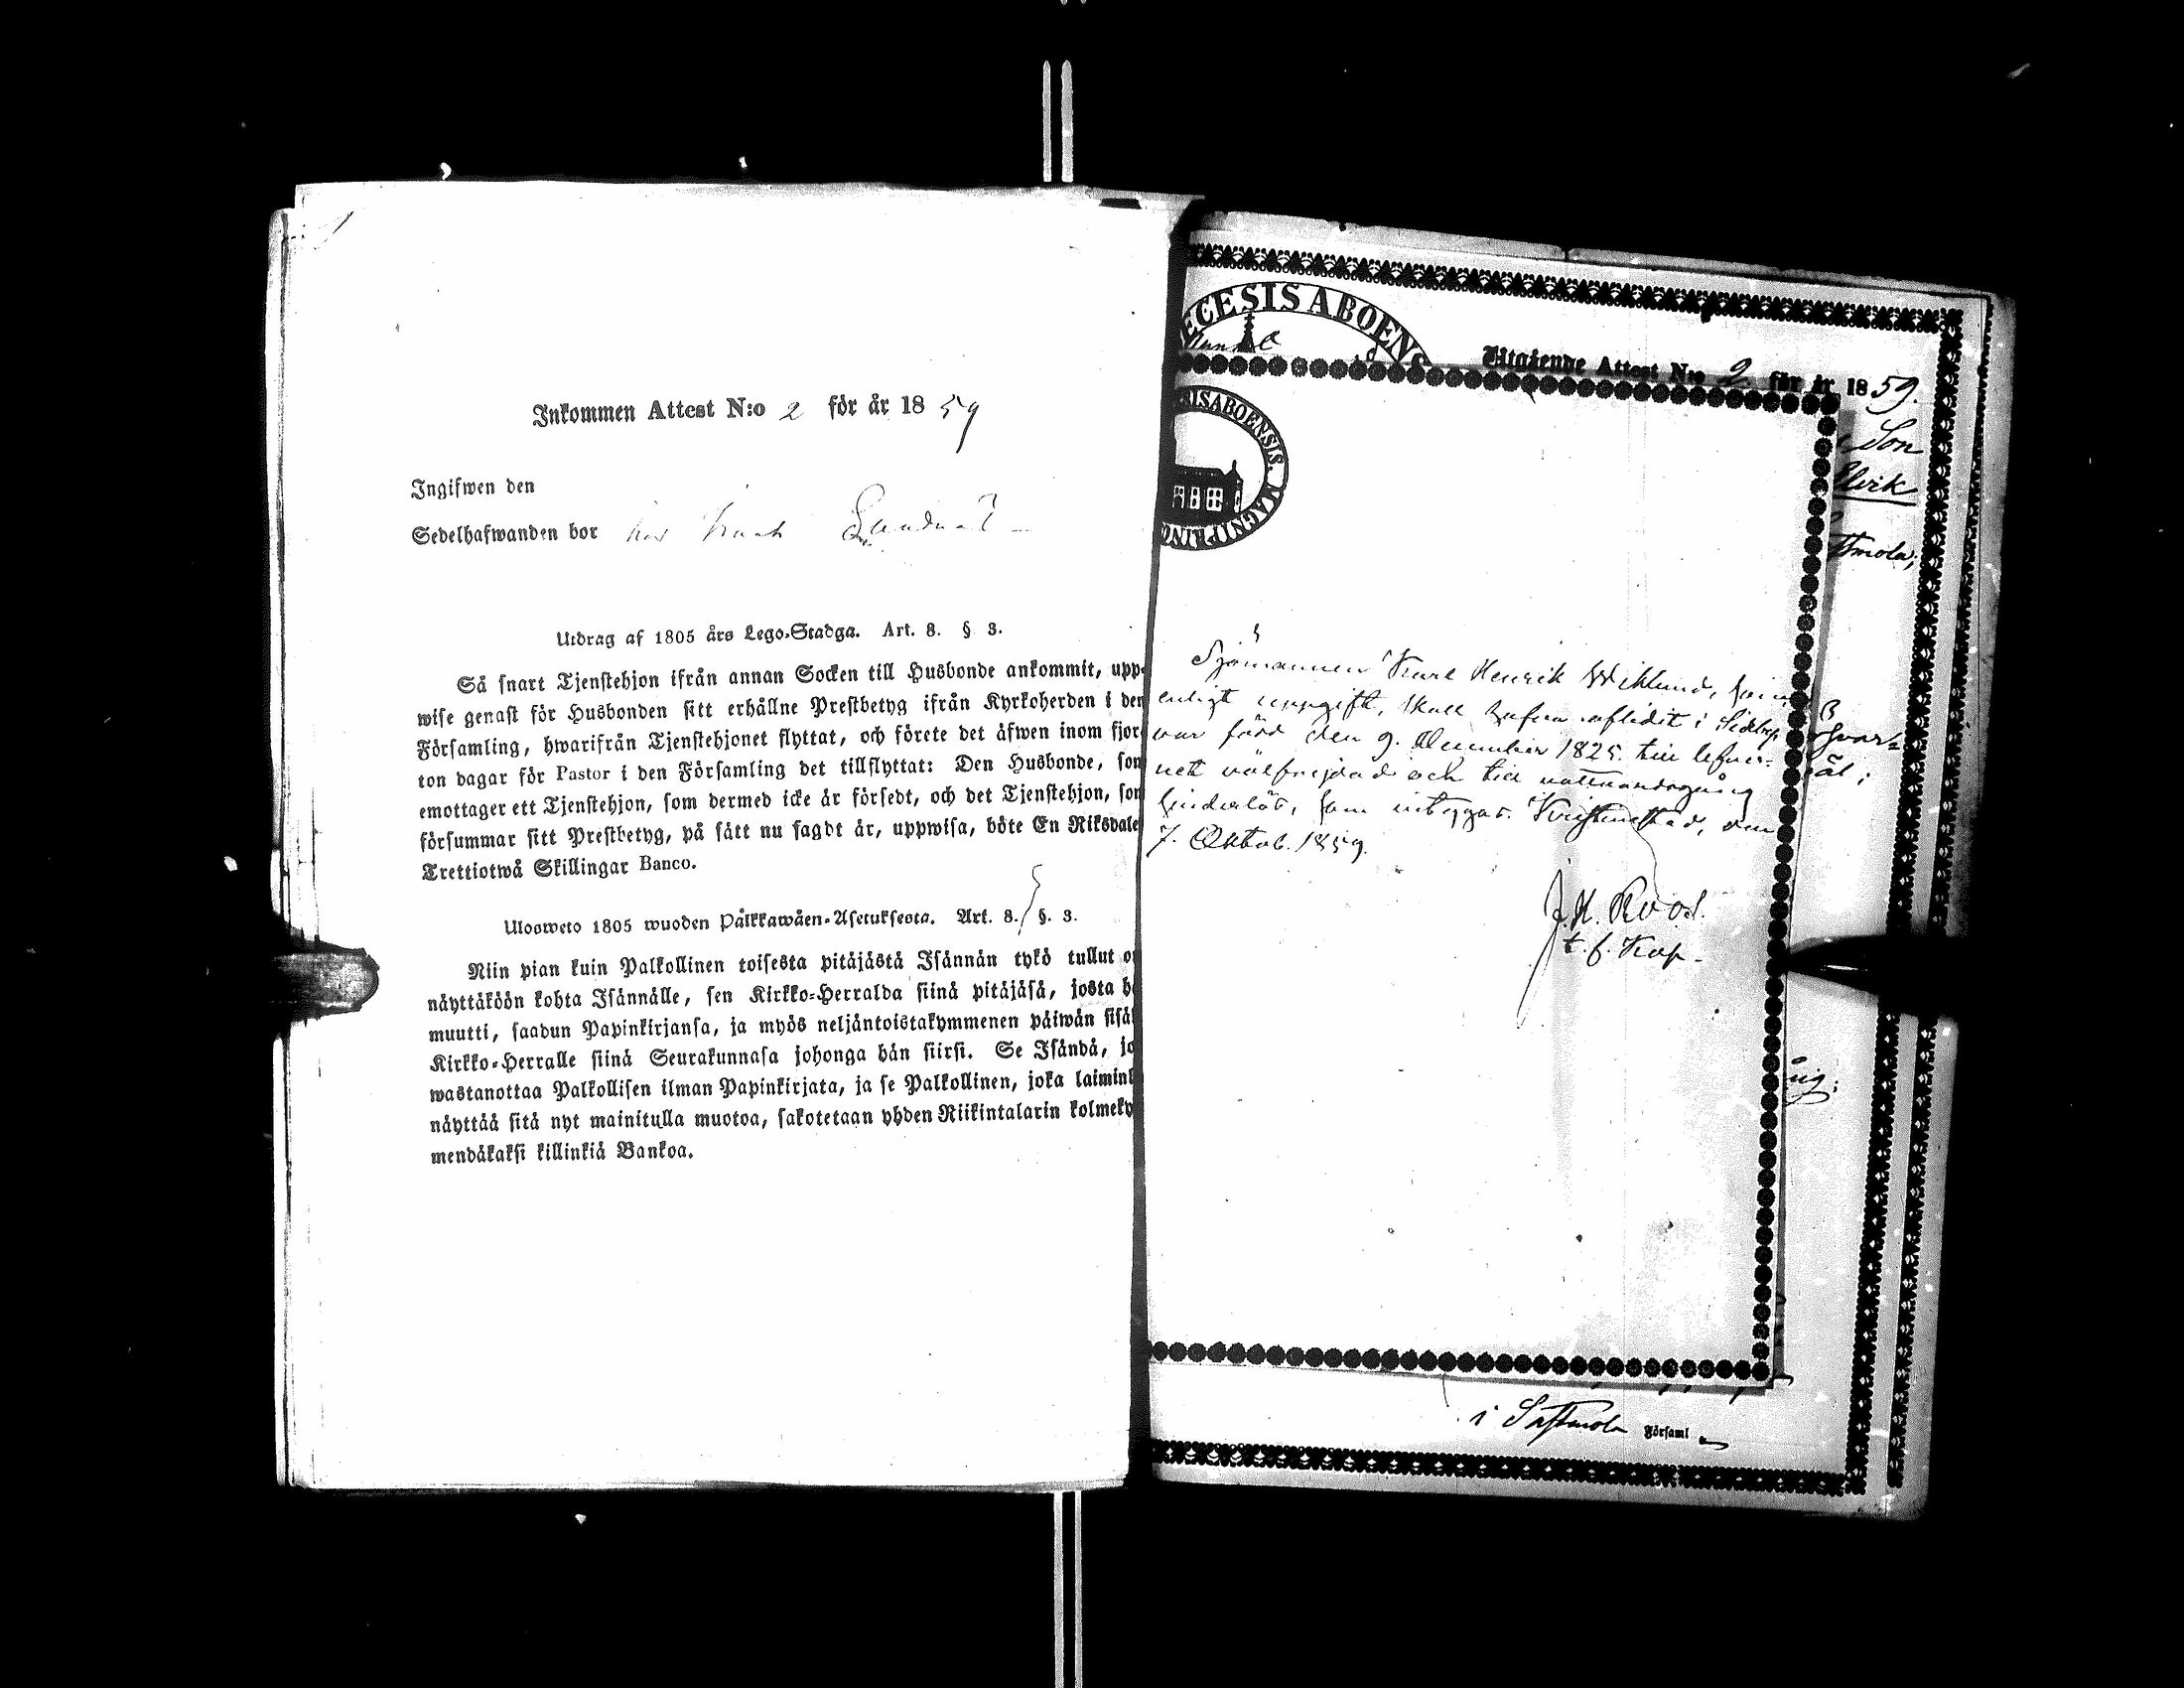 Inkommen Attest N:o 2 för år 1859
Ingifwen den
Sedelhafwanden bor hos
Utdrag af 1805 års Lego-Stadga. Art. 8. § 3.
Så snart Tjenstehjon ifrån annan Socken till Husbonde ankommit, upp-
wise genast för Husbonden sitt erhållne Prestbetyg ifrån Kyrkoherden i den
Församling, hwarifrån Tjenstehjonet flyttat, och förete det äfwen inom fjor-
ton dagar för Pastor i den Församling det tillflyttat: Den Husbonde, som
emottager ett Tjenstehjon, som dermed icke är försedt, och det Tjenstehjon, som
försummar sitt Prestbetyg, på sätt nu sagdt är, uppwisa, böte En Riksdale
Trettiotwå Skillingar Banco.
Ulosweto 1805 wuoden Pälkkawäen-Asetuksesta. Art. 8. §. 3.
Niin pian kuin Palkollinen toisesta pitäjästä Isännän tykö tullut o
näyttäköön kohta Isännälle, sen Kirkko-Herralda siinä pitäjäsä, josta h
muutti, saadun Papinkirjansa, ja myös neljäntoistakymmenen päiwän sisä
Kirkko-Herralle siinä Seurakunnasa johonga hän siirsi. Se Isändä, jo
wastanottaa Palkollisen ilman Papinkirjata, ja se Palkollinen, joka laiminl
näyttää sitä nyt mainitulla muotoa, sakotetaan yhden Riikintalarin kolmeky
mendäkaksi killinkiä Bankoa.
ECESIS ABOENS
Utgående Attest N:o 2 för år 1859.
Son
Elvik
tmola;
SIS ABOENSIS. MAGNI PRINC
Sjömannen Karl Henrik Wiklund, som
enligt uppgift, skall hafva aflidit i
var född den 9. December 1825. till lefver-
net välfrejdad och till nattvardsgång
hinderlös, som intygas. Kristinestad, den
7. Oktob. 1859.
J. H. Roos.
t. f. Kap.
i Sastmola Församl